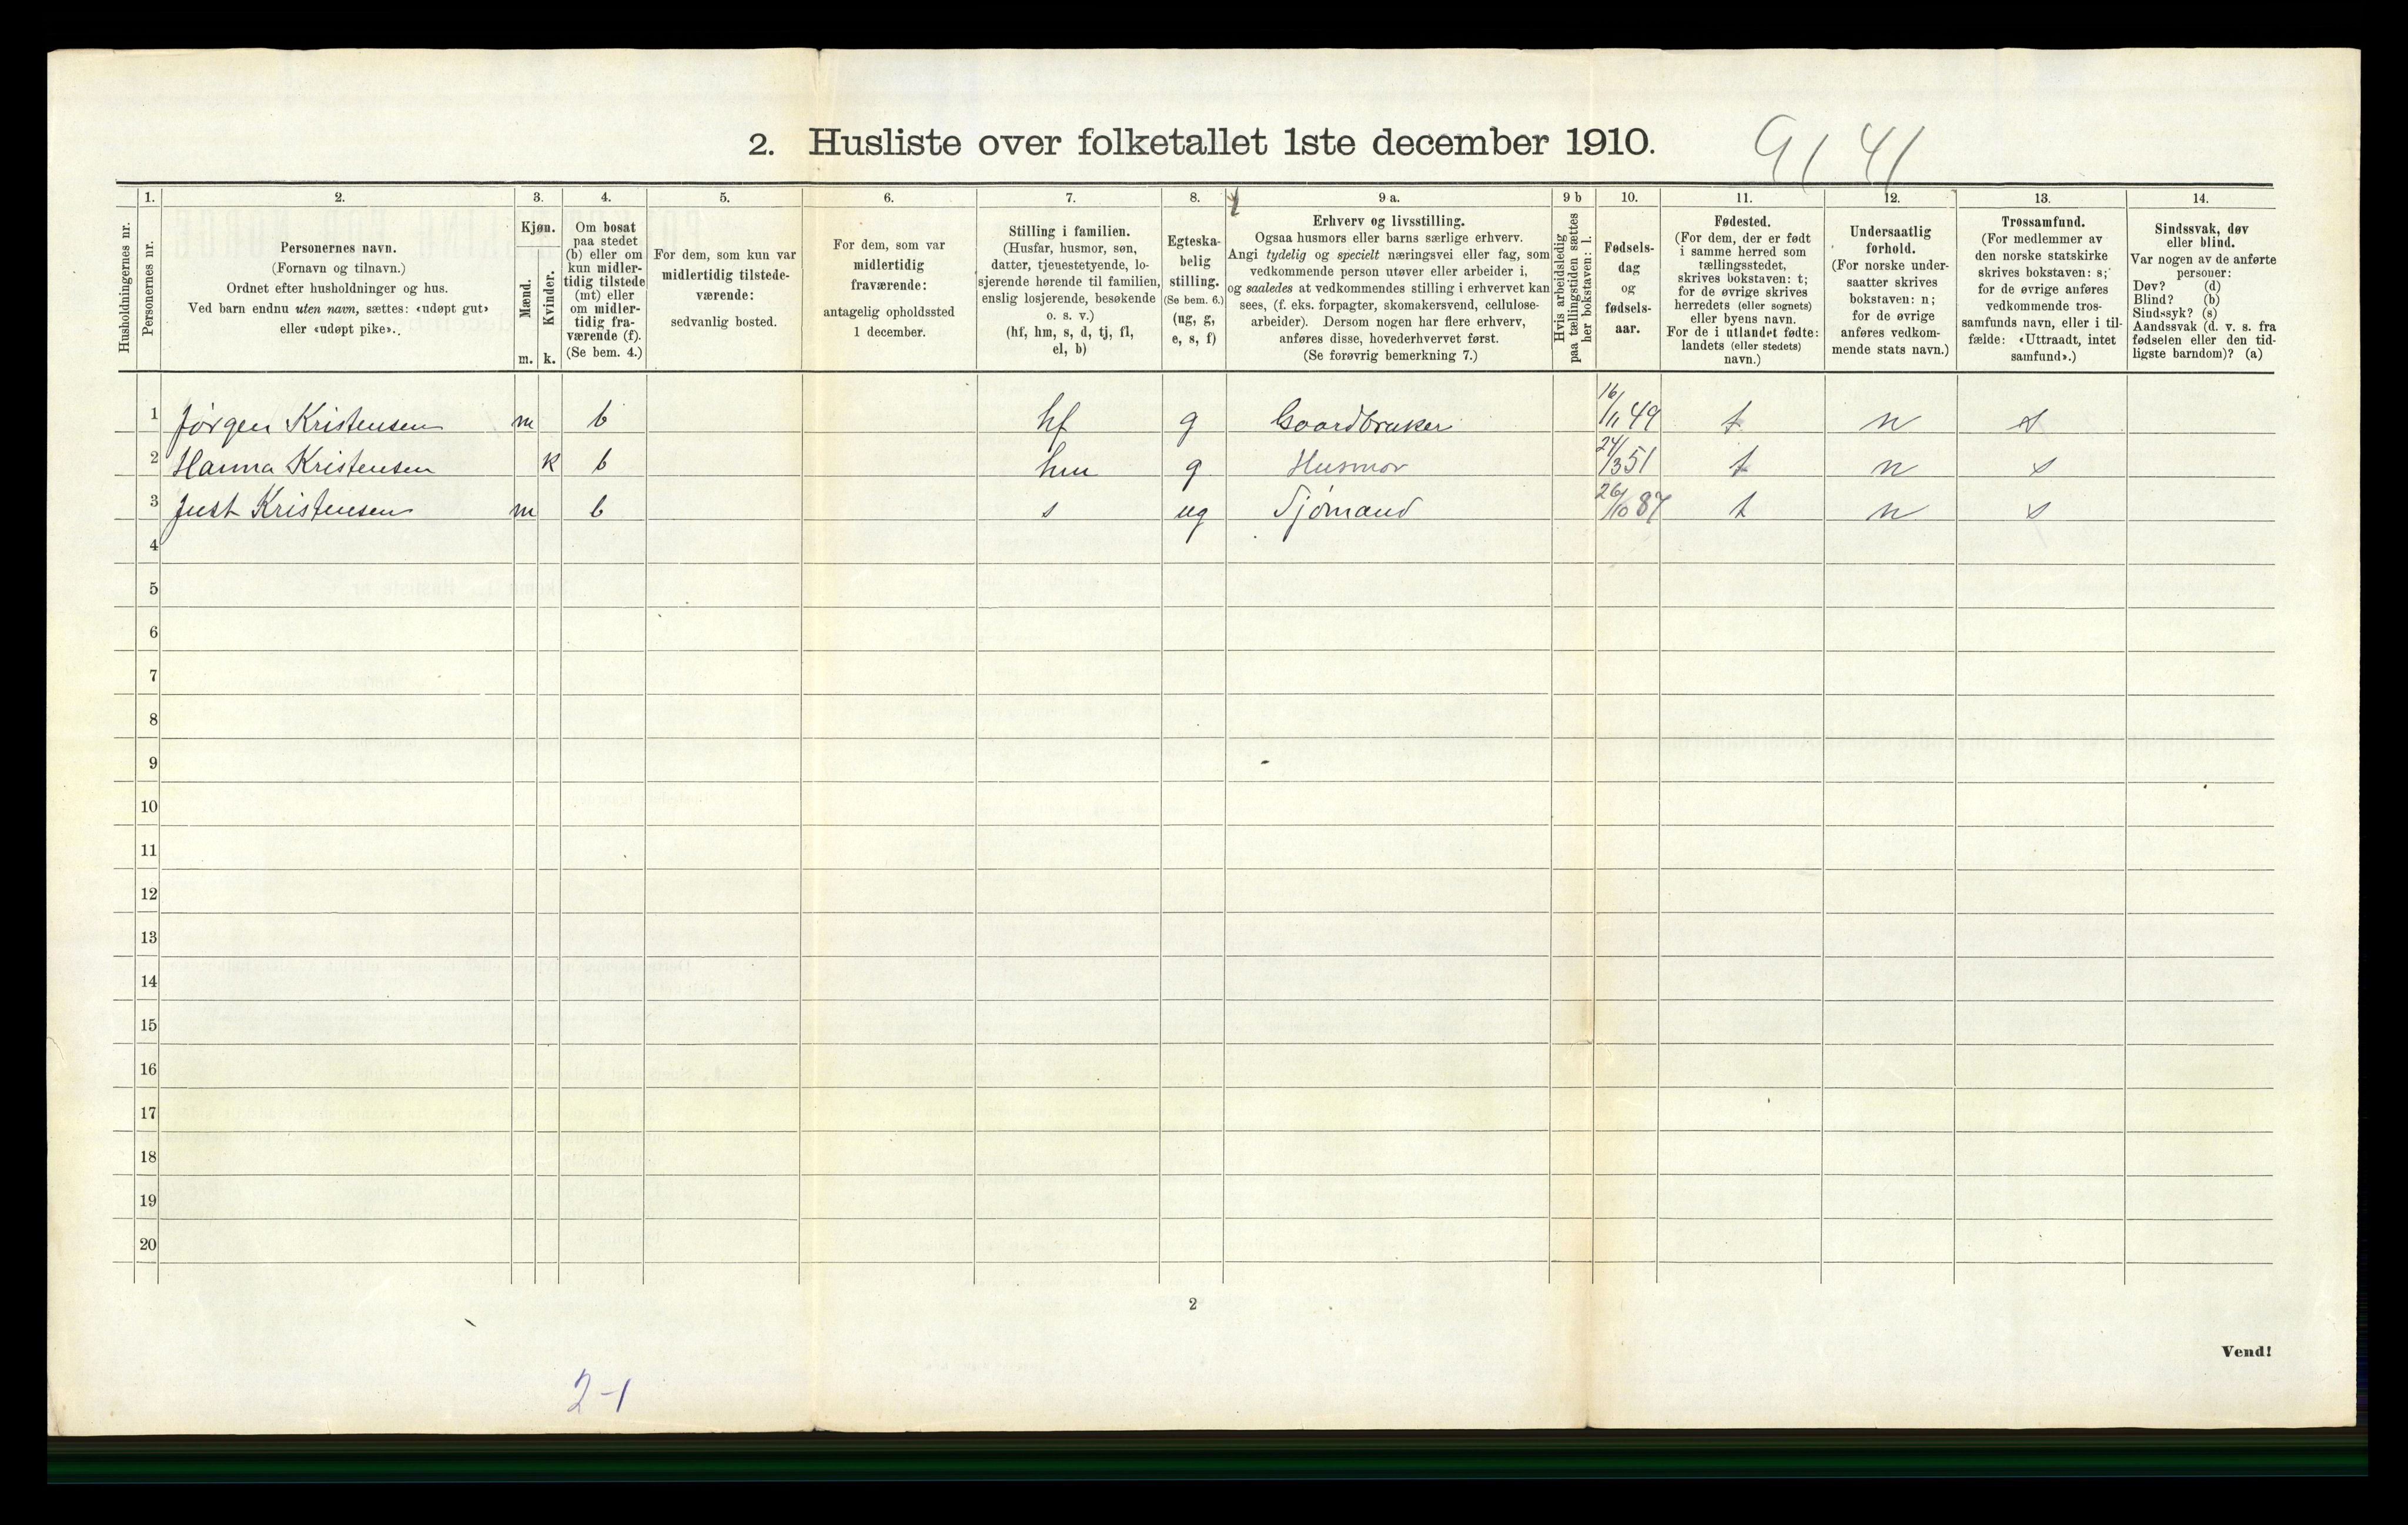 2. Husliste over folketallet 1ste december 1910.
9/41
Husholdningernes nr.
1.
Personernes nr.
2.
Personernes navn.
(Fornavn og tilnavn.)
Ordnet efter husholdninger og hus.
Ved barn endnu uten navn, sættes: «udøpt gut»
eller «udøpt pike».
3.
Kjøn.
Mænd.
m.
Kvinder.
k.
4.
Om bosat
paa stedet
(b) eller om
kun midler-
tidig tilstede
(mt) eller
om midler-
tidig fra-
værende (f).
(Se bem. 4.)
5.
For dem, som kun var
midlertidig tilstede-
værende:
sedvanlig bosted.
6.
For dem, som var
midlertidig
fraværende:
antagelig opholdssted
1 december.
7.
Stilling i familien.
(Husfar, husmor, søn,
datter, tjenestetyende, lo-
sjerende hørende til familien,
enslig losjerende, besøkende
o. s. v.)
(hf, hm, s, d, tj, fl,
el, b)
8.
Egteska-
belig
stilling.
(Se bem. 6.)
(ug, g,
e, s, f)
9 a.
Erhverv og livsstilling.
Ogsaa husmors eller barns særlige erhverv.
Angi tydelig og specielt næringsvei eller fag, som
vedkommende person utøver eller arbeider i,
og saaledes at vedkommendes stilling i erhvervet kan
sees, (f. eks. forpagter, skomakersvend, cellulose-
arbeider). Dersom nogen har flere erhverv,
anføres disse, hovederhvervet først.
(Se forøvrig bemerkning 7.)
9 b
Hvis arbeidsledig
paa tællingstiden sættes
her bokstaven: l.
10.
Fødsels-
dag
og
fødsels-
aar.
11.
Fødested.
(For dem, der er født
i samme herred som
tællingsstedet,
skrives bokstaven: t;
for de øvrige skrives
herredets (eller sognets)
eller byens navn.
For de i utlandet fødte:
landets (eller stedets)
navn.)
12.
Undersaatlig
forhold.
(For norske under-
saatter skrives
bokstaven: n;
for de øvrige
anføres vedkom-
mende stats navn.)
13.
Trossamfund.
(For medlemmer av
den norske statskirke
skrives bokstaven: s;
for de øvrige anføres
vedkommende tros-
samfunds navn, eller i til-
fælde: «Uttraadt, intet
samfund».)
14.
Sindssvak, døv
eller blind.
Var nogen av de anførte
personer:
Døv? (d)
Blind? (b)
Sindssyk? (s)
Aandssvak (d. v. s. fra
fødselen eller den tid-
ligste barndom)? (a)
1 Jørgen Kristensen m b hf g Gaardbruker 16/11 49 t n s
2 Hanna Kristensen k b hm g Husmor 24/3 51 t n s
3 Just Kristensen m b s ug Sjømand 26/10 87 t n s
4
5
6
7
8
9
10
11
12
13
14
15
16
17
18
19
20
2
Vend!
2-1